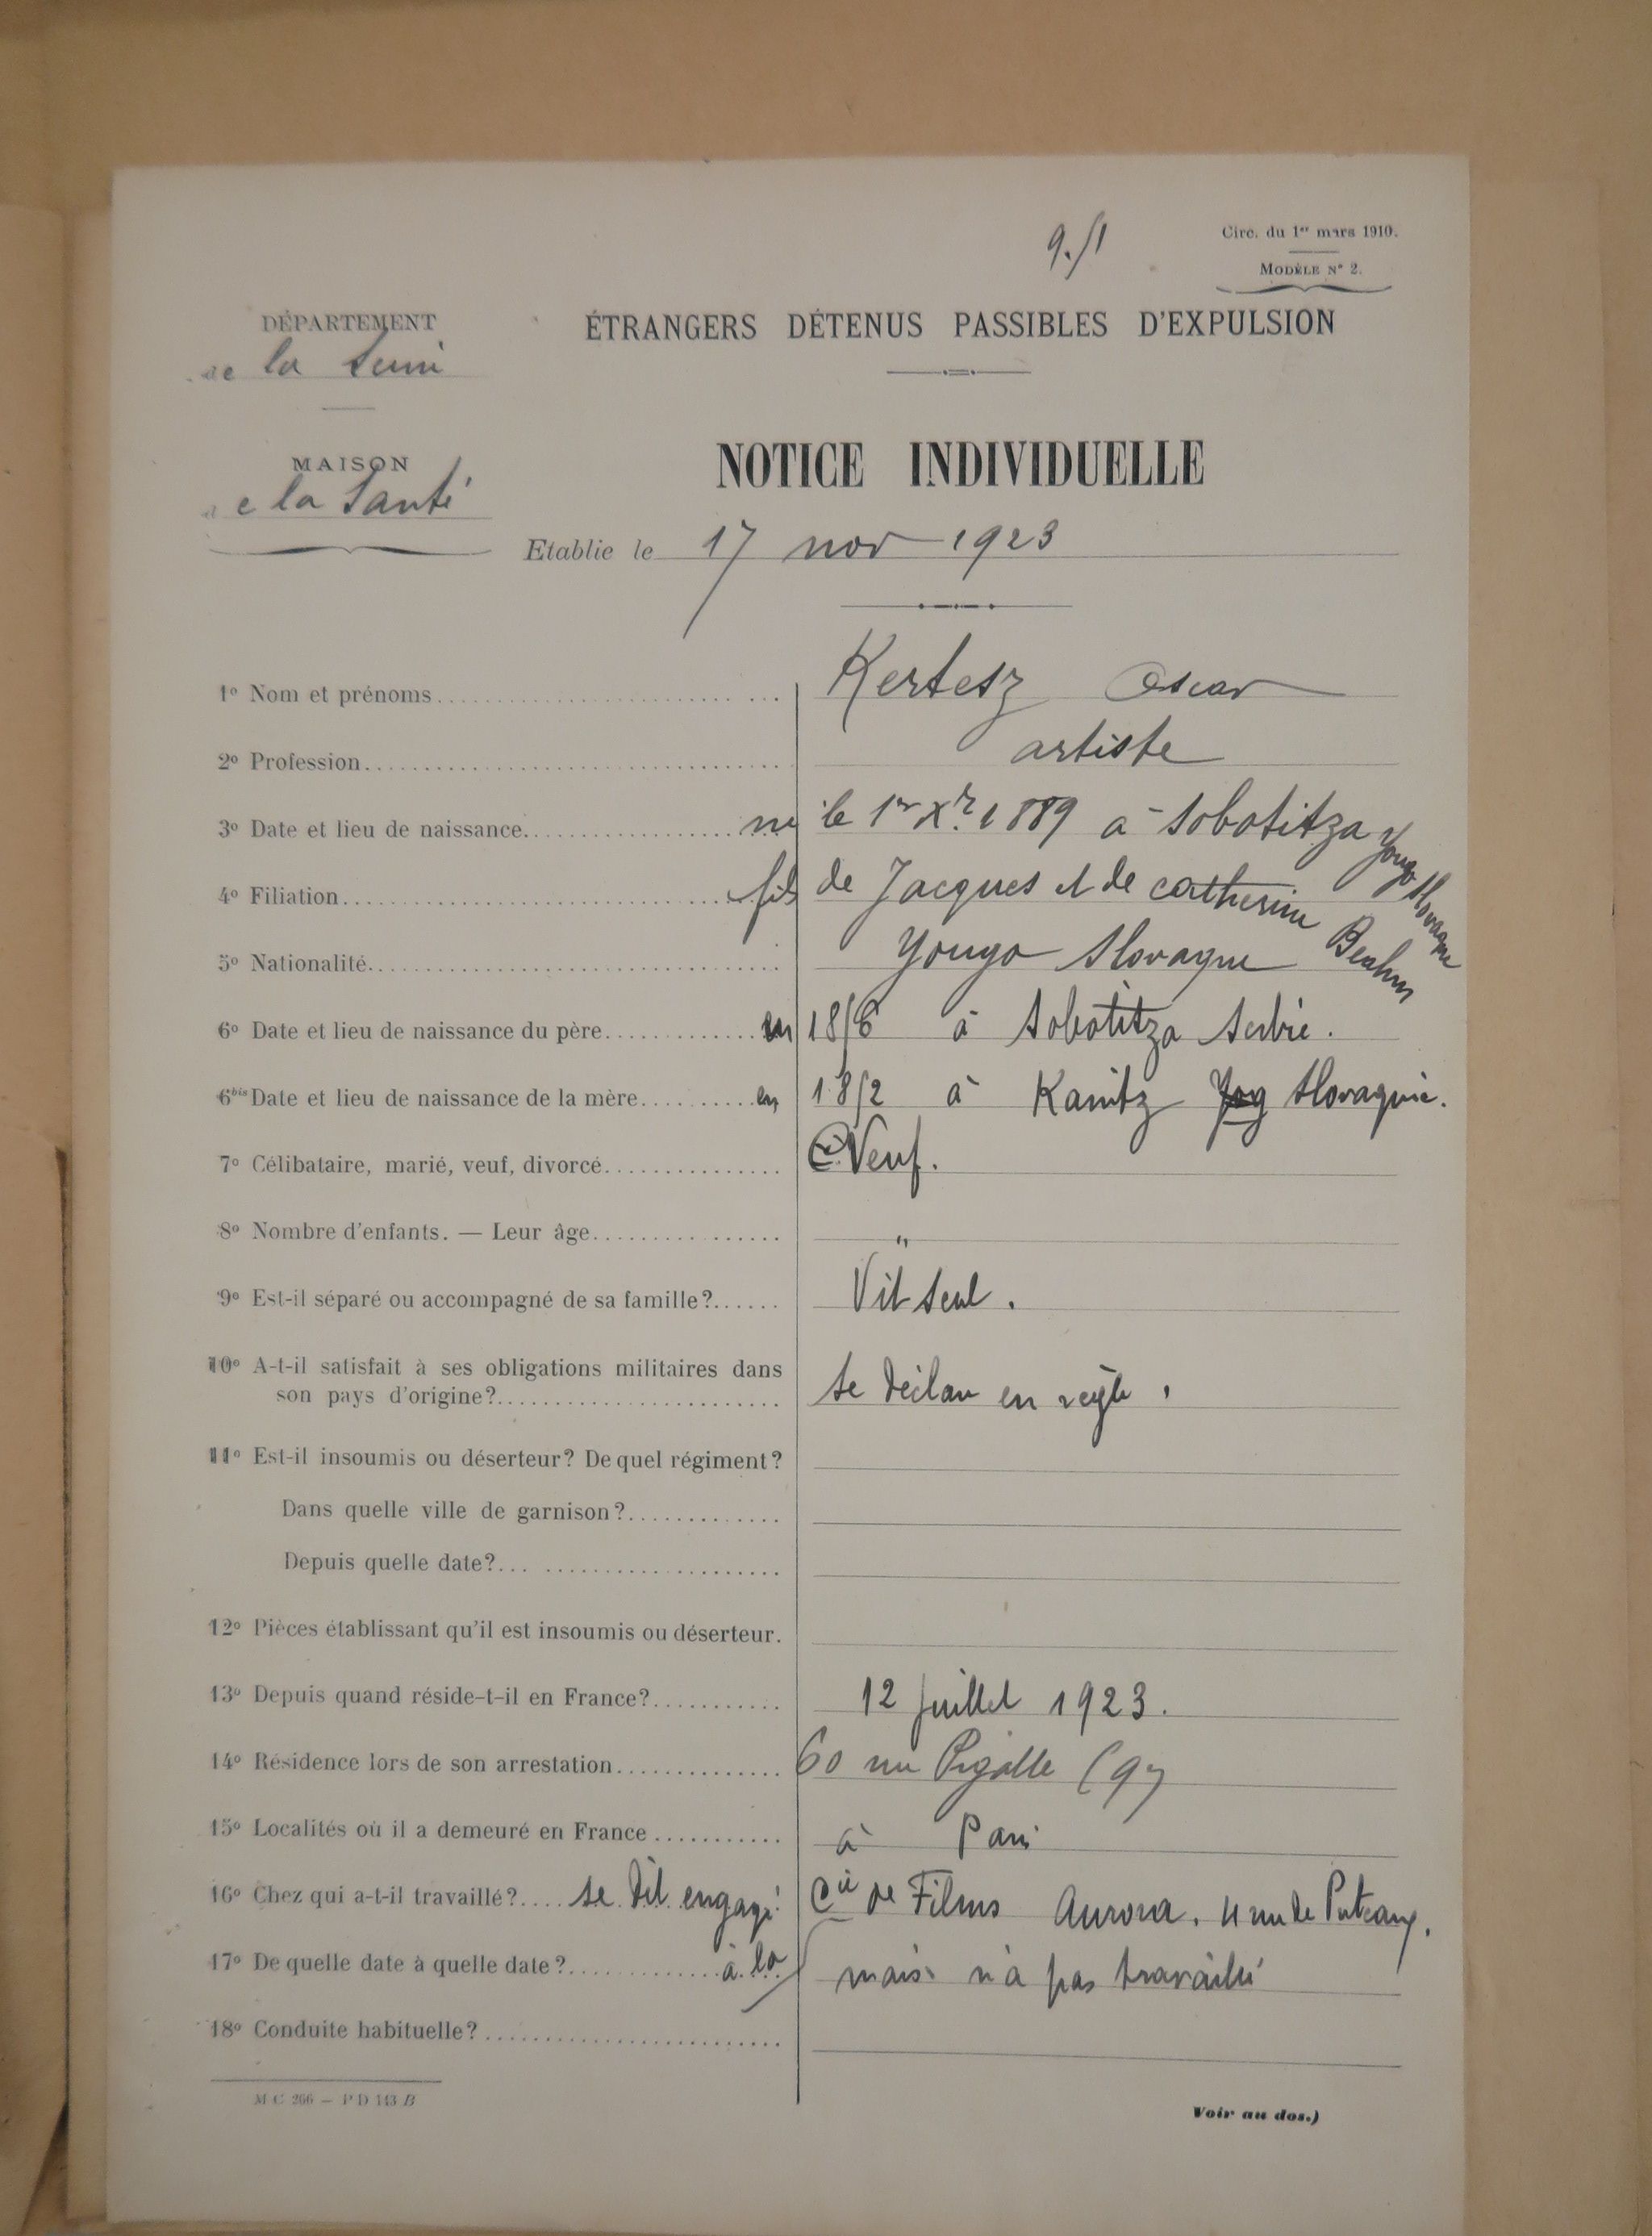 9./1
Circ. du 1er mars 1910.
MODÈLE N° 2.
DÉPARTEMENT
de la Seine
ÉTRANGERS DÉTENUS PASSIBLES D'EXPULSION
MAISON
de la Santé
NOTICE INDIVIDUELLE
Etablie le 17 nov 1923
1° Nom et prénoms Kertesz Oscar
2° Profession artiste
3° Date et lieu de naissance né le 1er Xre 1889 à Sobotitza Yougo Slovaquie
4° Filiation fils de Jacques et de Catherine
5° Nationalité Yougo Slovaque
6° Date et lieu de naissance du père en 1856 à Sobotitza Serbie.
6bis Date et lieu de naissance de la mère en 1852 à Kanitz Yog Slovaquie.
7° Célibataire, marié, veuf, divorcé Veuf.
8° Nombre d'enfants. — Leur âge "
9° Est-il séparé ou accompagné de sa famille? Vit seul.
10° A-t-il satisfait à ses obligations militaires dans
son pays d'origine? se déclare en règle.
11° Est-il insoumis ou déserteur? De quel régiment?
Dans quelle ville de garnison?
Depuis quelle date?
12° Pièces établissant qu'il est insoumis ou déserteur.
13° Depuis quand réside-t-il en France? 12 juillet 1923.
14° Résidence lors de son arrestation 60 rue Pigalle (9e)
15° Localités où il a demeuré en France à Paris
16° Chez qui a-t-il travaillé? se dit engagé Cie de Films Aurora. 4 rue de Puteaux.
17° De quelle date à quelle date? à la mais n'a pas travaillé
18° Conduite habituelle?
M C 266 — P D 143 B
Voir au dos.)